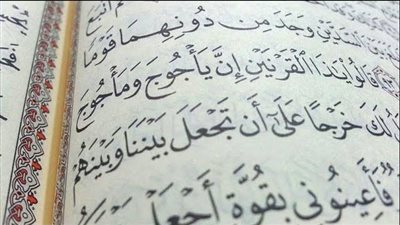 ٱلسَّدَّيۡنِ وَجَدَ مِن دُونِهِمَا قَوۡمٗا
قَالُواْ يَٰذَا ٱلۡقَرۡنَيۡنِ إِنَّ يَأۡجُوجَ وَمَأۡجُوجَ
لَكَ خَرۡجًا عَلَىٰٓ أَن تَجۡعَلَ بَيۡنَنَا وَبَيۡنَهُمۡ
فَأَعِينُونِي بِقُوَّةٍ أَجۡعَلۡ